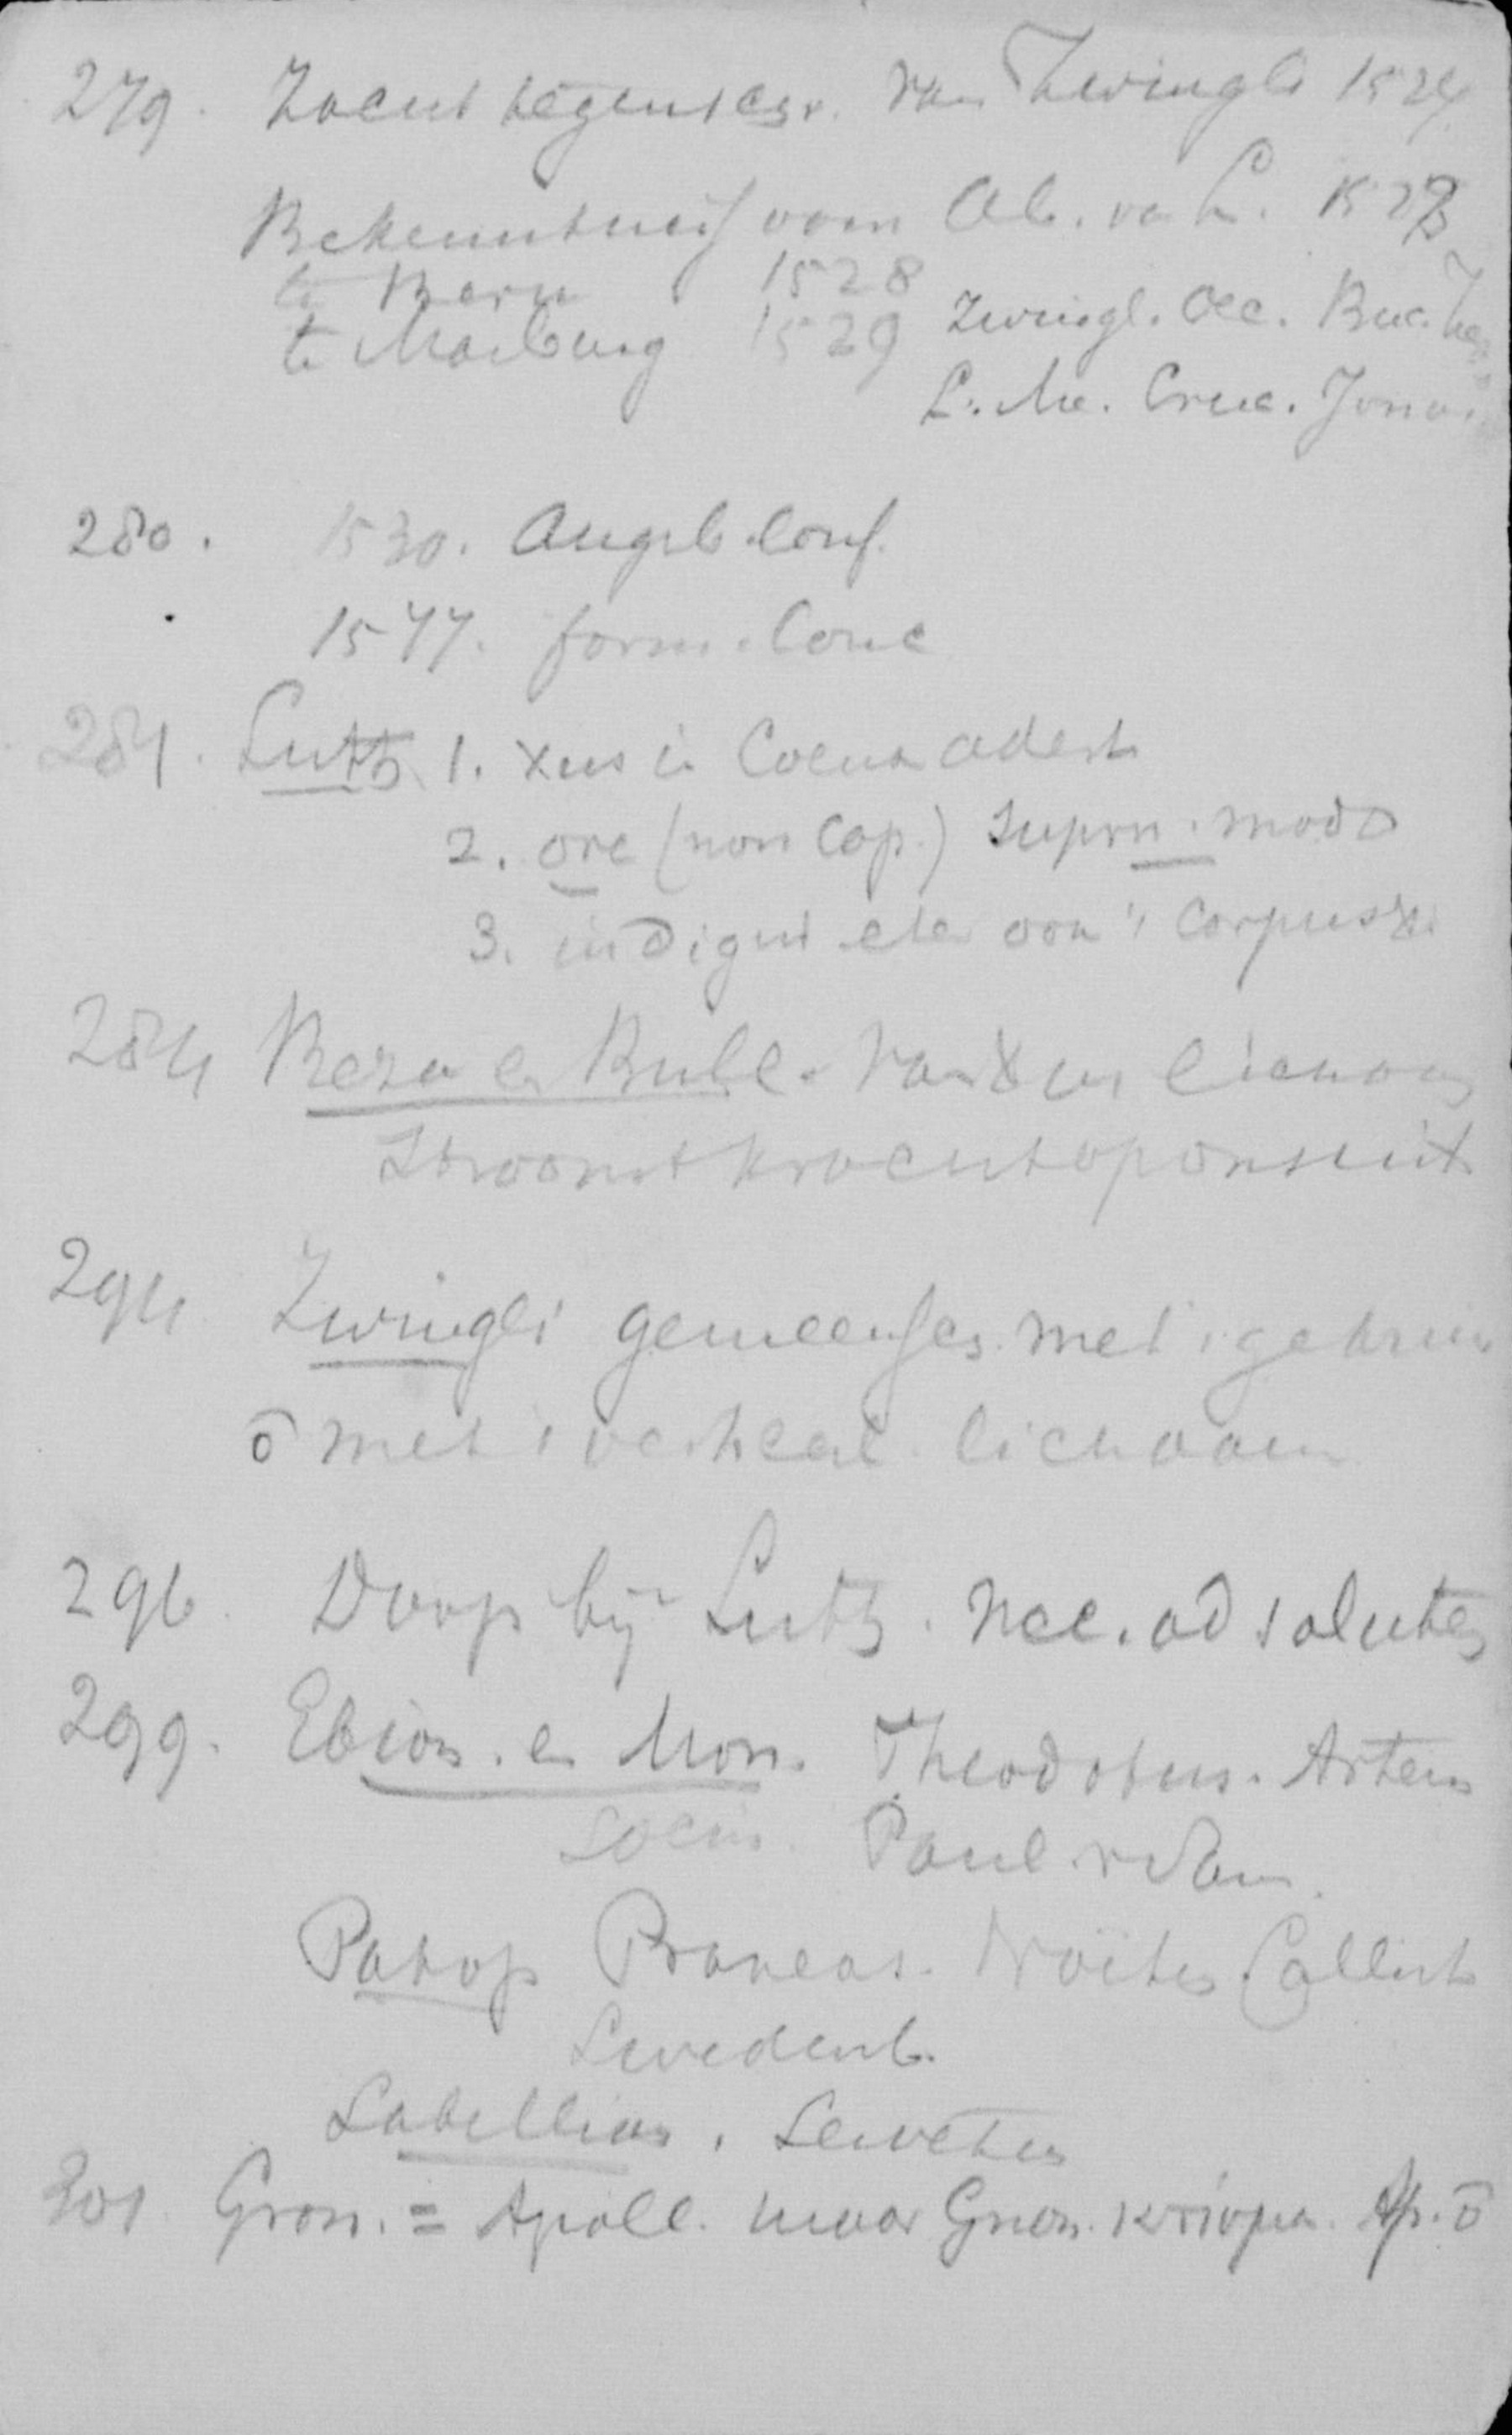 279. Zacht tegenscr. van Zwingli 1524
Bekenntniss vom Ab. va L. 1528
te Bern 1528
te Marburg 1529 Zwingl. Oec. Buc.
L. Me. Cruc. Jona
280. 1530. Augsb. Conf.
1577. form. Conc
281. Luth. 1. Xus in Coena adest
2. ore (non Cap.) suprn. modo
3. indigni eten ook 't corpus Xi
284 Beza en Bull. van Xus lichaam
stroomt kracht op ons uit
294 Zwingli gemeensch. met 't gebrui
ō met 't verheerl. lichaam
296 Doop bij Luth. nec. ad salutem
299. Ebion. en Mon. Theodotus. Artem
Socin. Paul. v Sam.
Patrop Praxeas. Noëtus Callist
Swedenb.
Sabellian. Servetus
301 Gron. = Apoll. maar Gron. κτισμα. Ap. ō